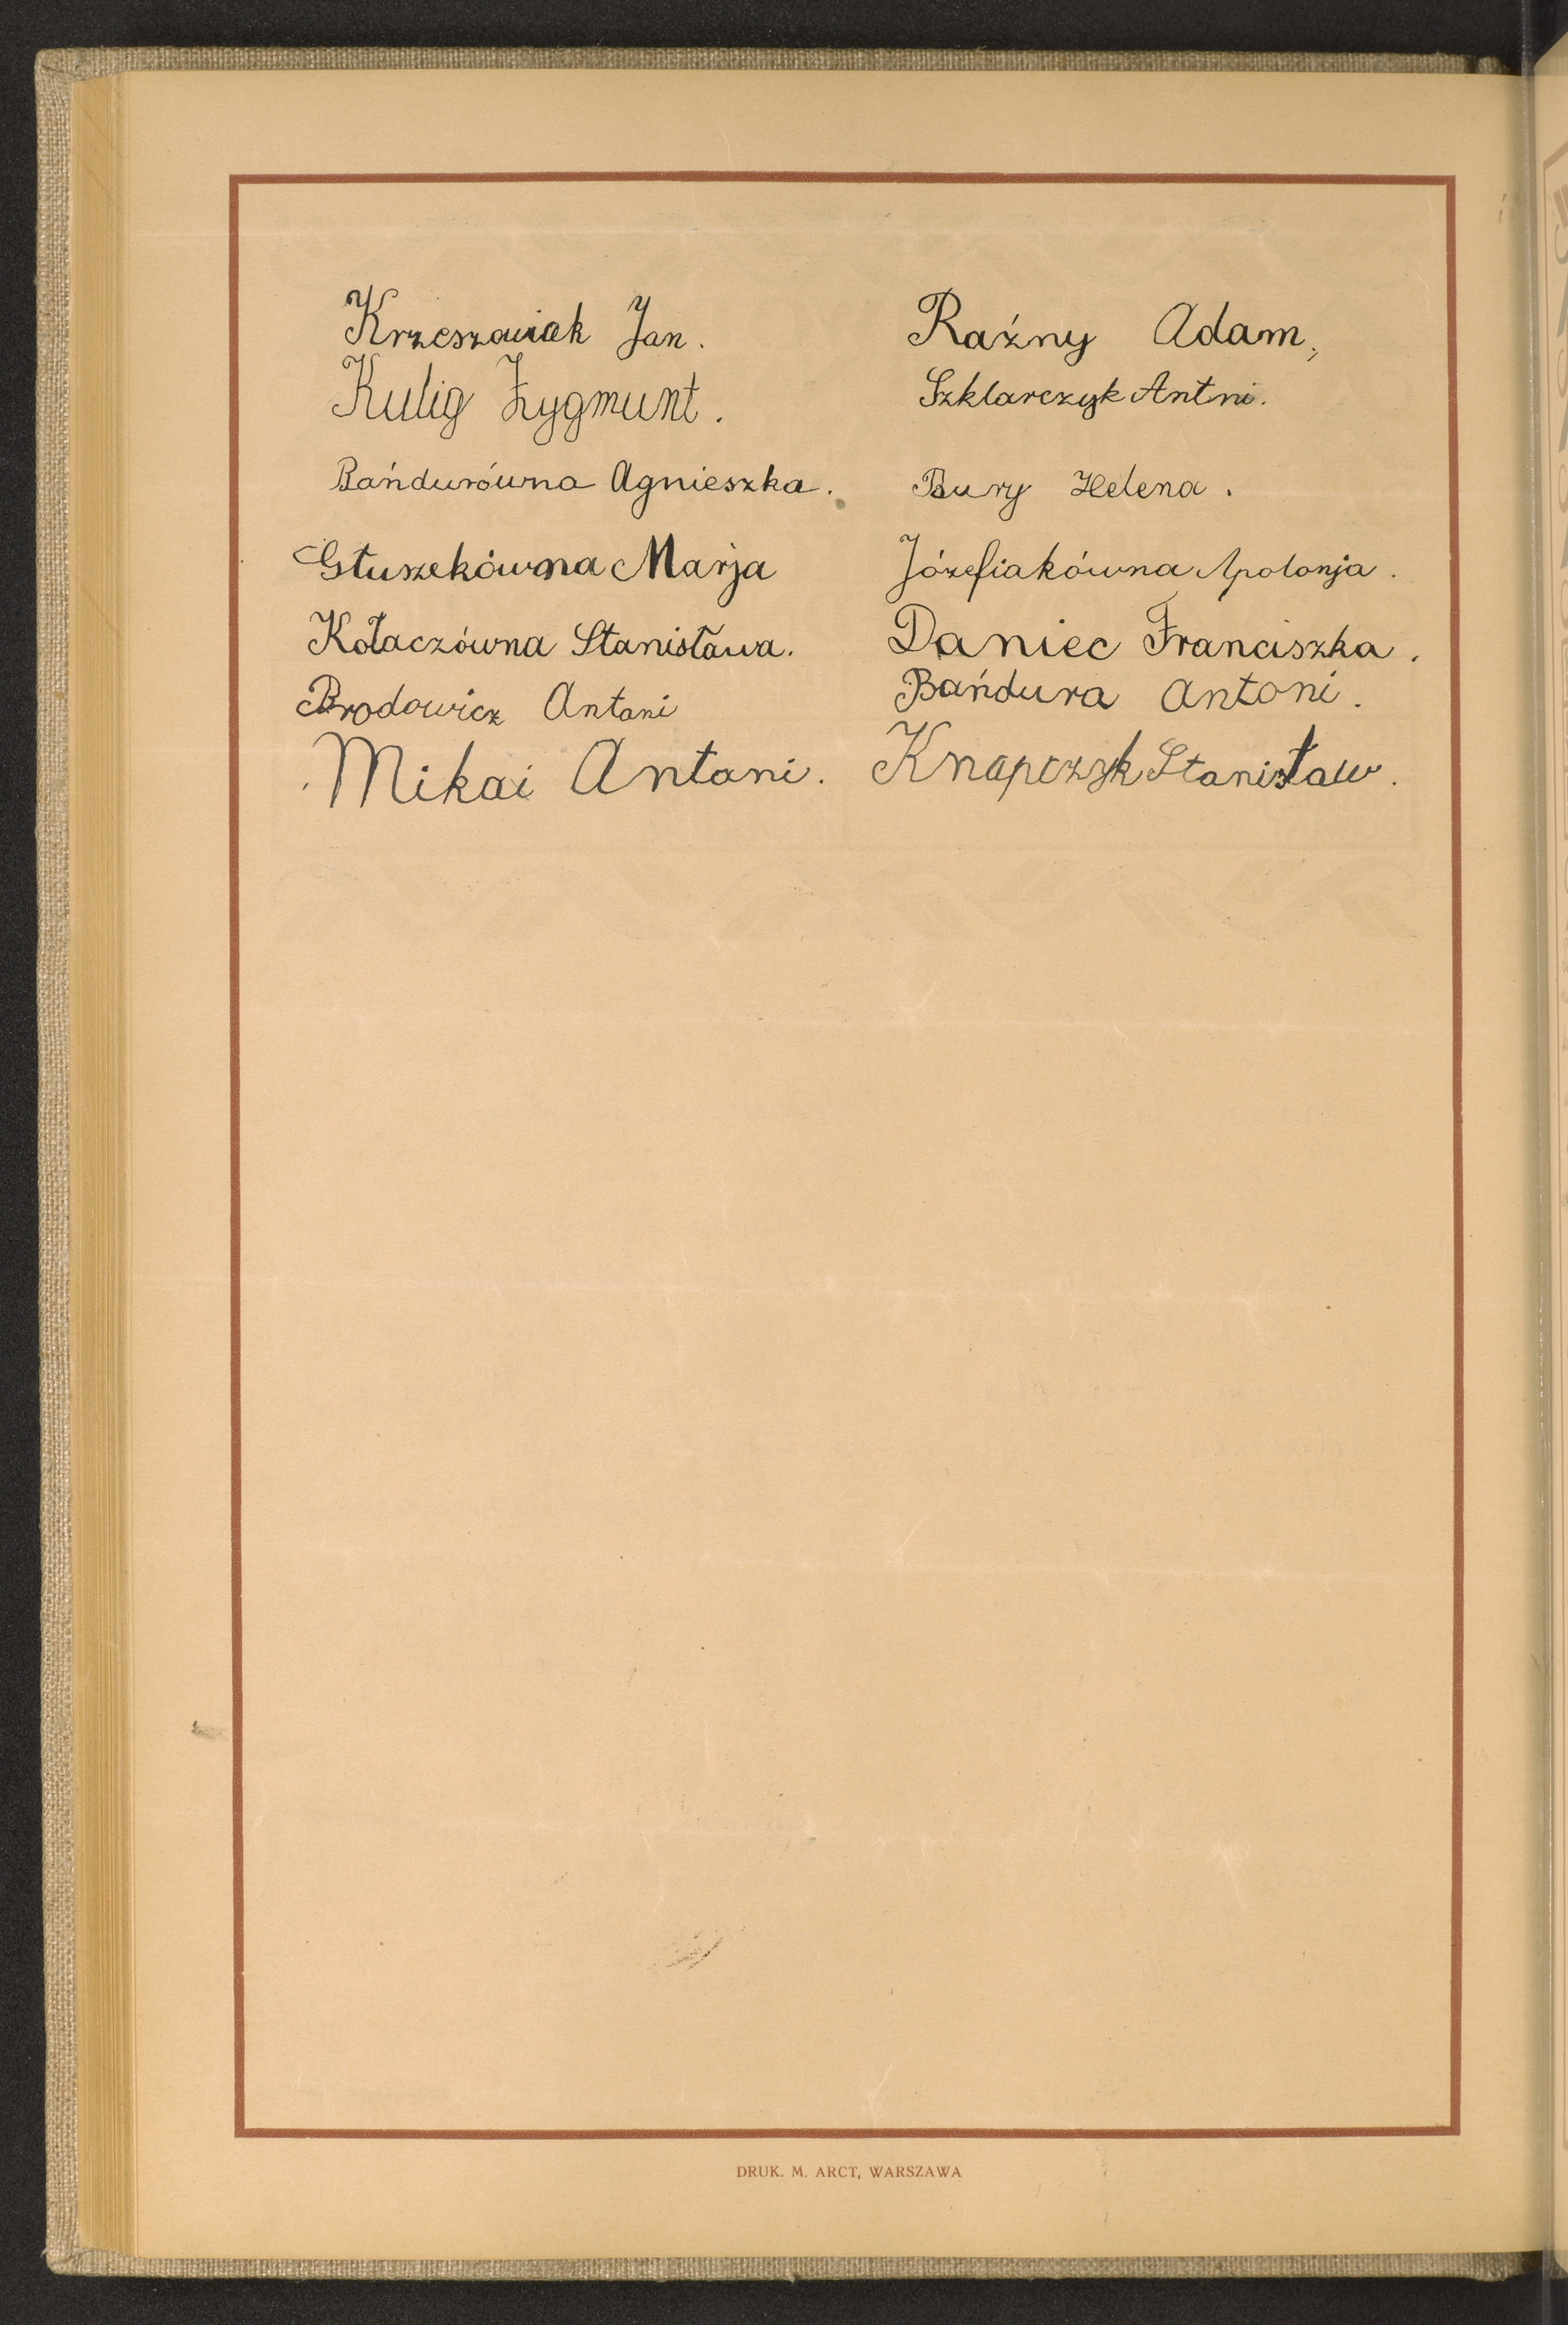 Krzeszowiak Jan.
Kulig Zygmunt.
Bańdurówna Agnieszka.
Głuszekówna Marja
Kołaczówna Stanisława.
Brodowicz Antoni
Mikai Antoni.
Raźny Adam,
Szklarczyk Antni.
Bury Helena.
Józefiakówna Apolonja.
Daniec Franciszka.
Bańdura Antoni.
Knapczyk Stanisław.
DRUK. M. ARCT, WARSZAWA